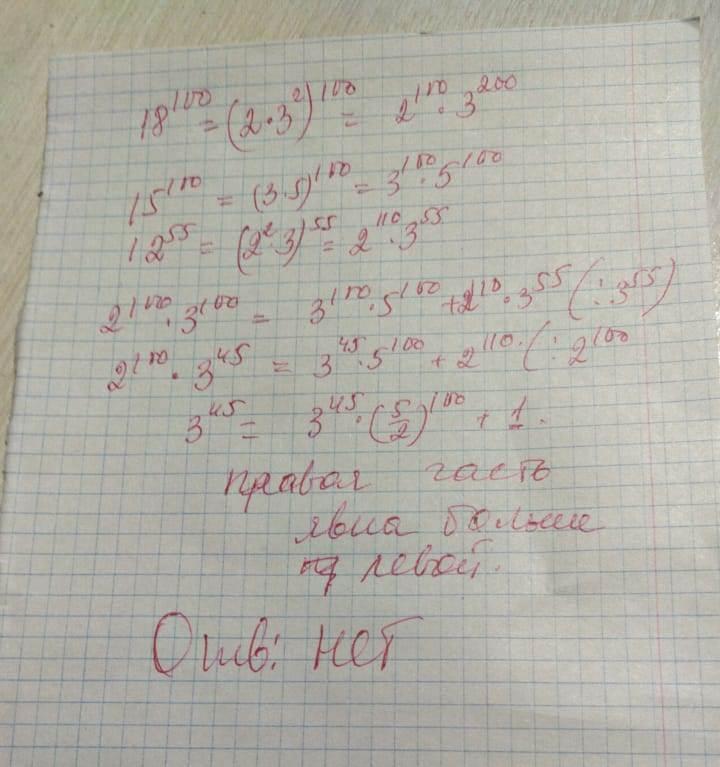 18^100 = (2·3^2)^100 = 2^100·3^200
15^100 = (3·5)^100 = 3^100·5^100
12^55 = (2^2·3)^55 = 2^110·3^55
2^100·3^100 = 3^100·5^100 + 2^110·3^55 (:3^55)
2^100·3^45 = 3^45·5^100 + 2^110·(:2^100
3^45 = 3^45·(5/2)^100 + 1.
правая часть
явна больше
левой.
Отв: нет